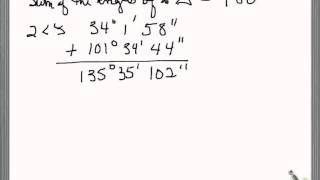 Sum of the angles of a △ = 180
2 <'s 34° 1' 58"
+ 101° 34' 44"
135° 35' 102"